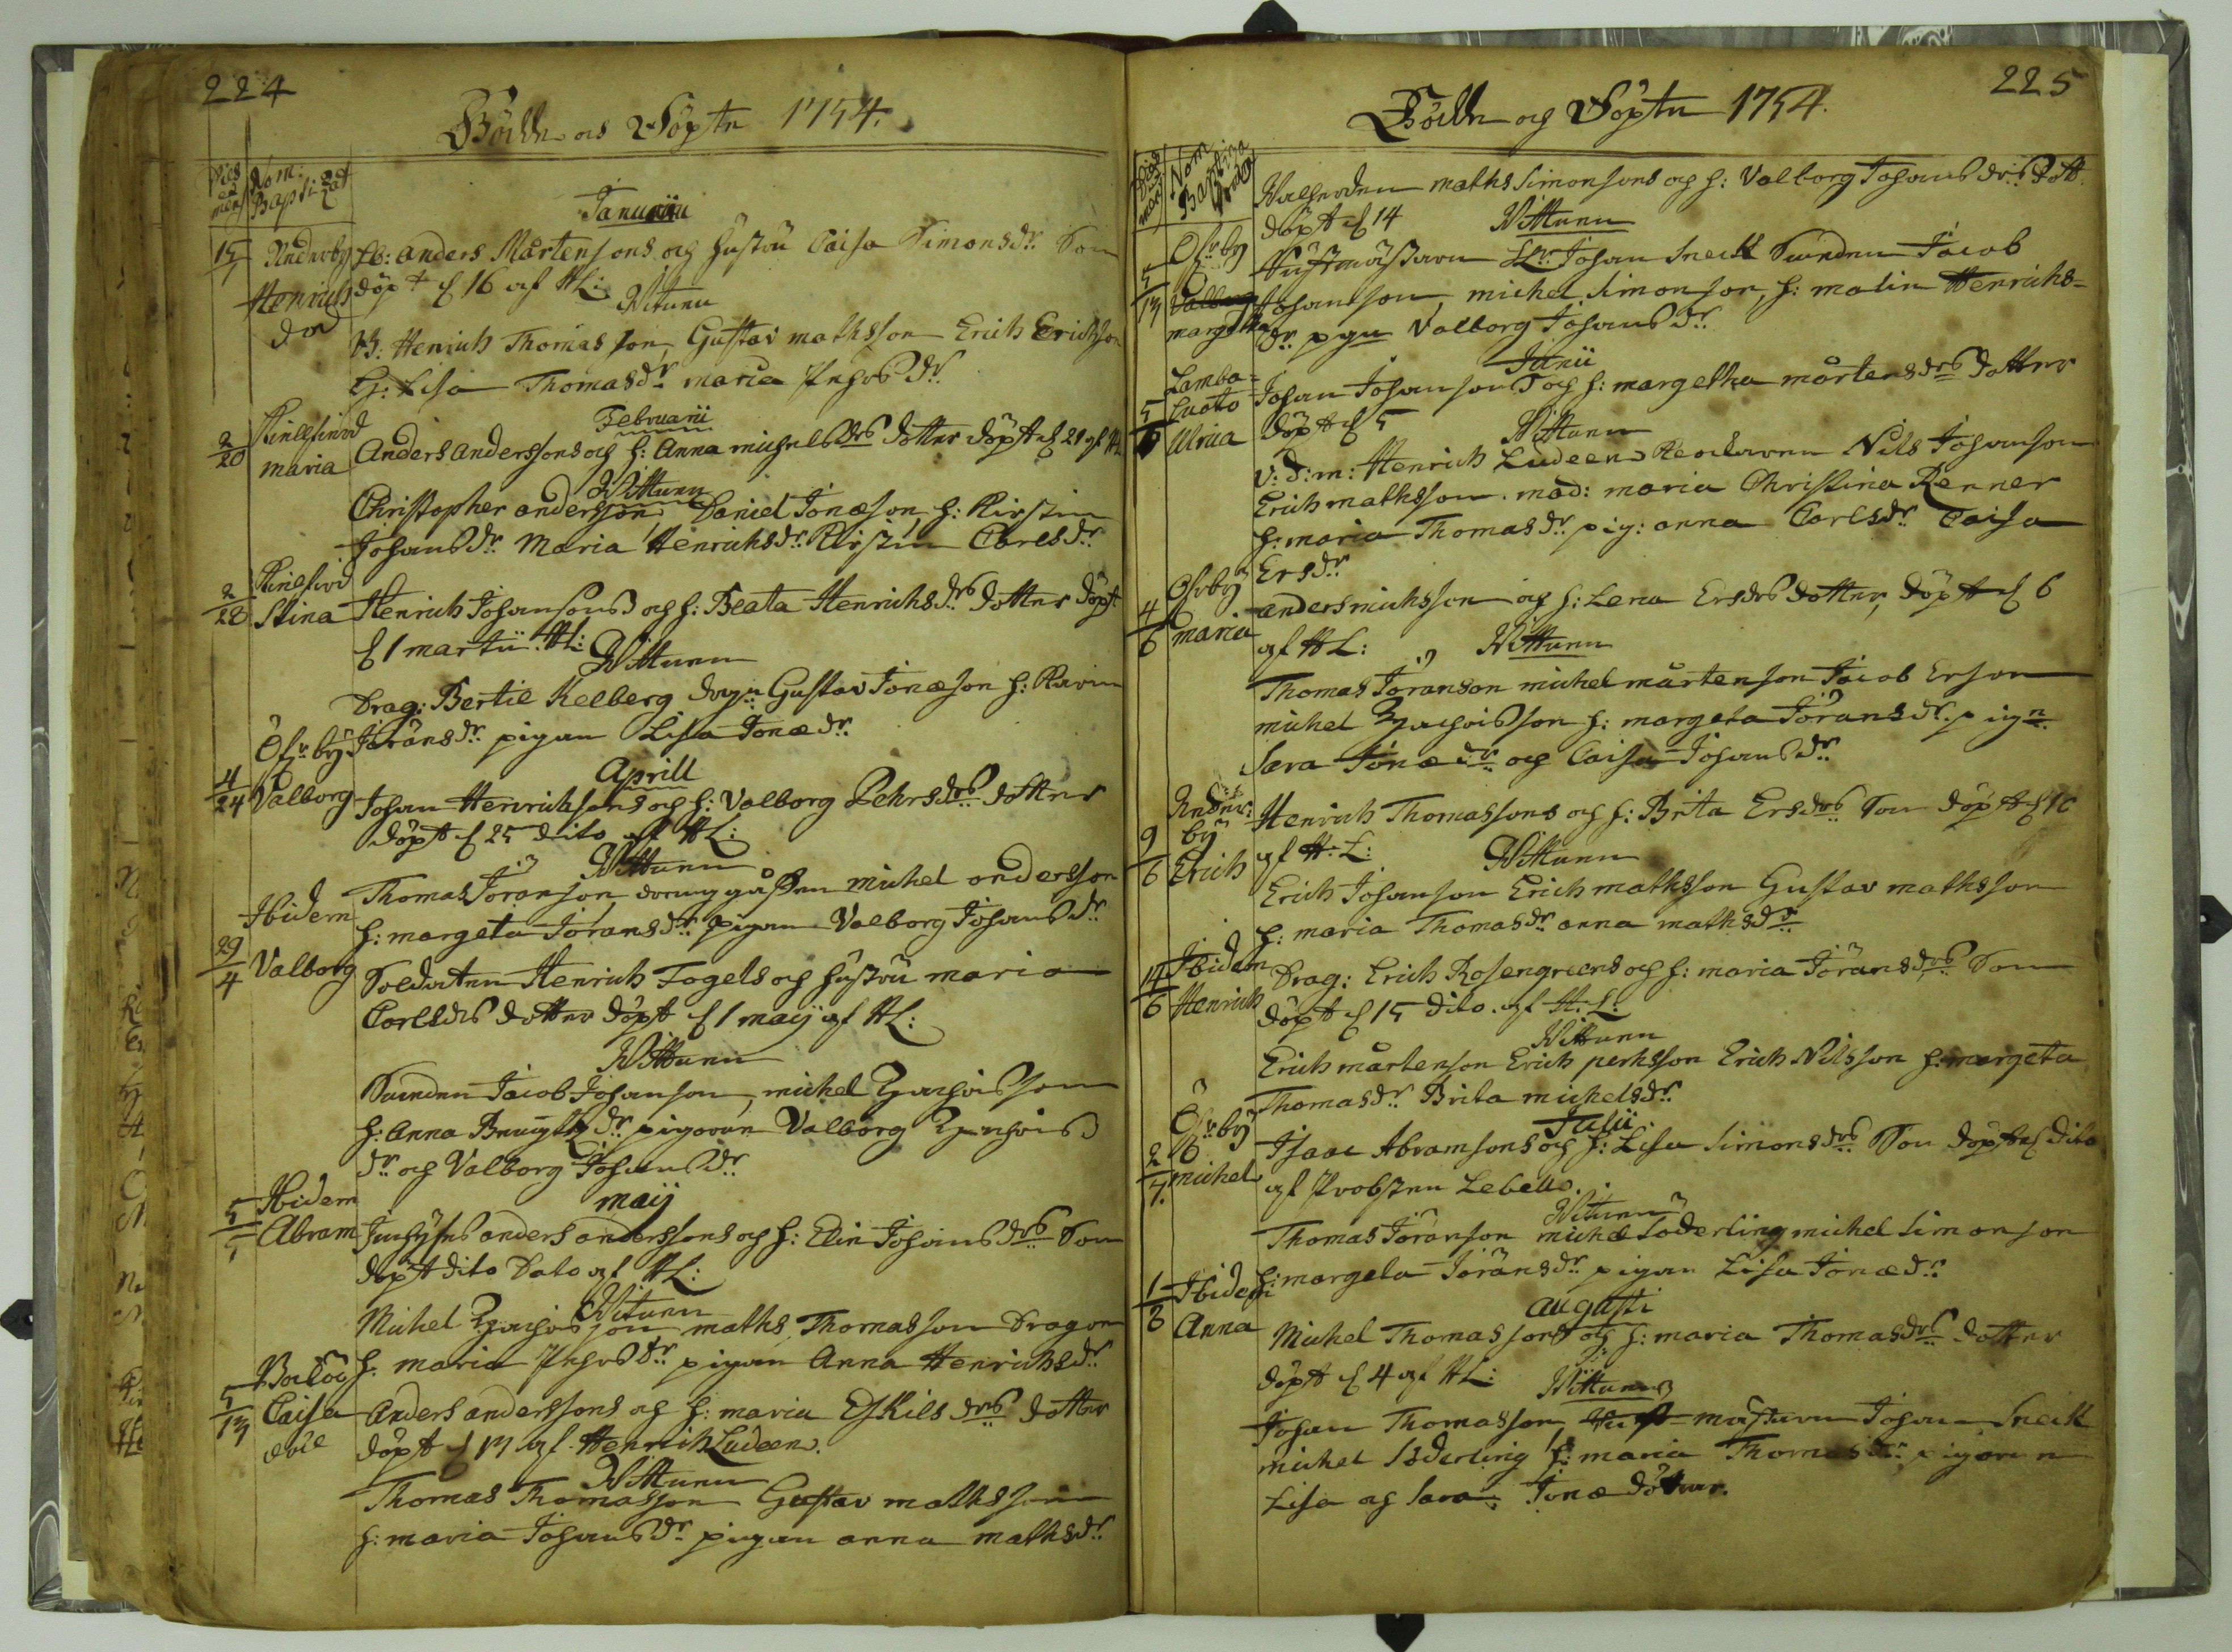 224
Födde och Döpte 1754.
Dies et mens
Nom: Baptizat
Januarii
15/1 Underby B: Anders Mårtensons och hustru Caisa Simonsdr Son
Henrich döpt d 16 af HL:
död
Vittnen
B: Henrich Thomasson, Gustav mathsson Erich Erichson
H: Lisa Thomasdr maria dr
Februarii
2/20 maria Anders Anderssons och h: Anna michelsdrs dotter döpt d 21 af HL
Vittnen
Christopher andersson, Daniel Jonæson, h: Kirstin
Johansdr Maria Henrichsdr Kirstin Carlsdr
2/28 Stina Henrich Johansons och h: Beata Henrichsdrs dotter döpt
d 1 martii. HL:
Vittnen
Drag: Bertil Kelberg Gustav Jonæson h: Karin
Öfverby Jöransdr pigan Lisa Jonædr
Aprill
4/24 Valborg Johan Henrichsons och h: Valborg Pehrsdrs dotter
döpt d 25 dito af HL:
Vittnen
Thomas Jöranson, michel andersson
Ibidem h: margeta Jöransdr pigan Valborg Johansdr
29/4 Valborg Soldaten Henrich Fogels och hustru maria
Carlsdrs dotter döpt d 1 maij af HL:
Vittnen
Jacob Johanson, michel Zachrisson
h: Anna dr pigorna Valborg Zachris
dr och Valborg Johansdr
Ibidem
maij
5/5 Abram Inhyses anders anderssons och h: Elin Johansdrs Son
döpt dito Dato af HL:
Vittnen
Michel Zachrisson maths Thomasson Dragon
h. maria dr pigan Anna Henrichsdr
5/13 Caisa Anders anderssons och h: maria Eskilsdrs dotter
döpt d 13 af Henrich Ludeen.
Vittnen
Thomas Thomasson Gustav mathsson
h: maria Johansdr pigan anna mathsdr
225
Födde och Döpte 1754.
Dies mens
Nom Baptiza
maths Simonsons och h: Valborg Johansdrs dott
döpt d 14
Vittnen
Öfverby
5/13 Valborg margetha Johan Sneck Jacob
Johansson, michel Simonson, h: malin Henrichs-
dr pigan Valborg Johansdr
Junii
Lamba-
luoto Johan Johansons och h: margetha mårtensdrs dotter
5/6 Ulrica döpt d 5
Vittnen
V: D: m: Henrich Ludeen Nils Johanson
Erich mathsson. mad: maria Christina Renner
h: maria Thomasdr pig: anna Carlsdr Caisa
Ersdr
Öfverby
4/6 maria anders michsson och h: Lena Ersdrs dotter, döpt d 6
af HL:
Vittnen
Thomas Jöranson michel mårtenson Jacob Erson
michel Zachrisson h: margeta Jöransdr pign
Sara Jonædr och Caisa Johansdr
Under-
by Henrich Thomassons och h: Brita Ersdrs Son döpt d 10
9/6 Erich af H: L:
Vittnen
Erich Johanson Erich mathsson Gustav mathsson
h: maria Thomasdr anna mathsdr
Ibidem
14/6 Henrich Drag: Erich Rosengreens och h: maria Jöransdrs Son
döpt d 15 dito. af H. L:
Vittnen
Erich mårtenson Erich pehrsson Erich Nilsson h: margeta
Thomasdr Brita michelsdr
Öfverby
Julii
2/7. michel Isaac Abramsons och h: Lisa Simonsdrs Son döpt d dito
af Probsten Lebell.
Vittnen
Thomas Jöranson michel Söderling michel Simonson
h: margeta Jöransdr pigan Lisa Jonædr
Augusti
Ibidem
1/8 Anna Michel Thomassons och h: maria Thomasdrs dotter
döpt d 4 af HL:
Vittnen
Johan Thomasson, mästaren Johan Sneck
michel Söderling h: maria Thomasdr pigorna
Lisa och Sara Jonæ döttrar.